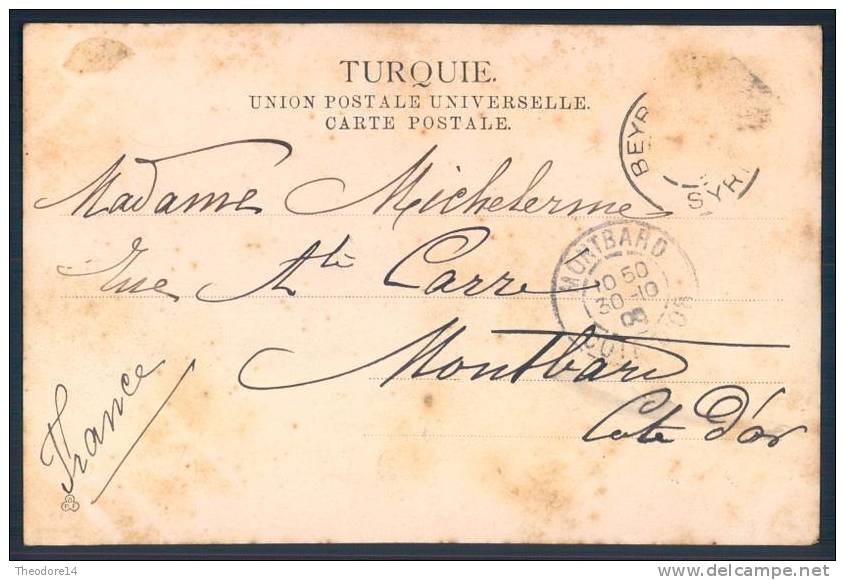 TURQUIE.
UNION POSTALE UNIVERSELLE.
CARTE POSTALE.
BEYR
SYR
Madame Michelerme
Rue Ate Carre
MONTBARD
10 50
30-10
COTE D'OR
Montbard
Cote d'or
France
Theodore14
www.delcampe.net